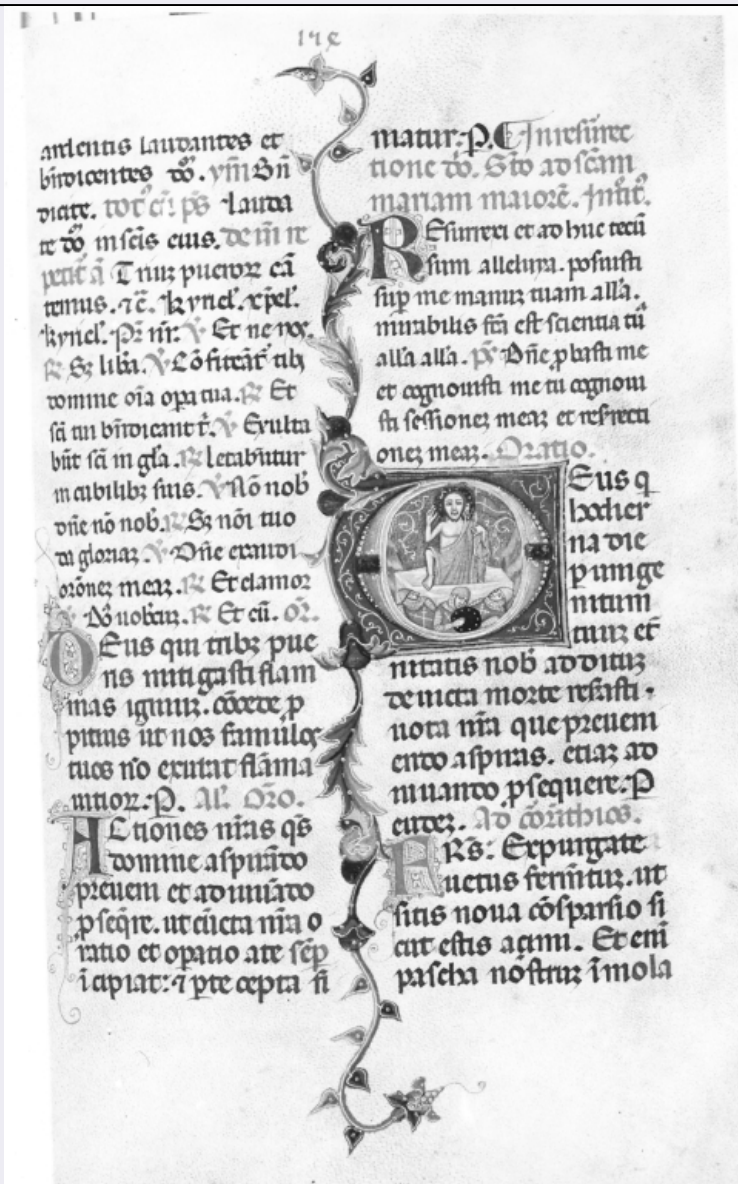 ardentis laudantes et
bn̄dicentes dō. ymͫ Bn̄
dicite. totͦ cū ps̄ Lauda
te dō in scīs eius. deīn re
petit᷑ ā Triuʒ pueroꝝ cā
temus. ⁊c̄. kyriel᷑. xp̄el᷑.
kyriel᷑. Pr̄ nr̄. ℣ Et ne nos.
℟ Sꝫ liba. ℣ Cōfiteāt᷑ tib̄
domine oīa opa tua. ℟ Et
sc̄i tui bn̄dicant t᷑. ℣ Exulta
būt sc̄i in gl̄a. ℟ letabūtur
in cubilibꝫ suis. ℣ Nō nob̄
dn̄e nō nob̄. ℟ Sꝫ nōi tuo
da gloriaꝫ. ℣ Dn̄e exaudi
orōneꝫ meaꝫ. ℟ Et clamor
℣ Dn̄s uobcuꝫ. ℟ Et cū. Or̄.
Deus qui tribꝫ pue
ris mitigasti flam
mas igniuꝫ. cōcede ꝓ
pitius ut nos famulos
tuos nō exurat flāma
uitioꝝ. P. Al᷑. Orō.
Actiones nr̄as qs̄
domine aspirādo
preueni et adiuuādo
ꝓseq̄re. ut cūcta nr̄a o
ratio et oꝑatio a te sēꝑ
īcipiat: ⁊ ꝑ te cepta fi
matur. P. ¶ In resūrec
tione dō. Stō ad scām
mariam maiorē. Introit᷑.
Resurrexi et ad huc tecū
sum alleluya. posuisti
suꝑ me manuꝫ tuam all̄a.
mirabilis fc̄a est scientia tū
all̄a all̄a. ps̄ Dn̄e ꝓbasti me
et cognouisti me tu cognoui
sti sessioneꝫ meaꝫ et resrecti
oneꝫ meaꝫ. Oratio.
Deus q
hodier
na die
ꝑ unige
nitum
tuuꝫ et᷑
nitatis nob̄ adituꝫ
deuicta morte resasti.
uota nr̄a que preueni
endo aspiras. etiaꝫ ad
iuuando ꝓsequere. P
eūdeꝫ. Ad corīnthios.
FRs̄: Expurgate
uetus ferm̄tuꝫ. ut
sitis noua cōsparsio si
cut estis aꝫimi. Et eni
pascha nōstruꝫ īmola